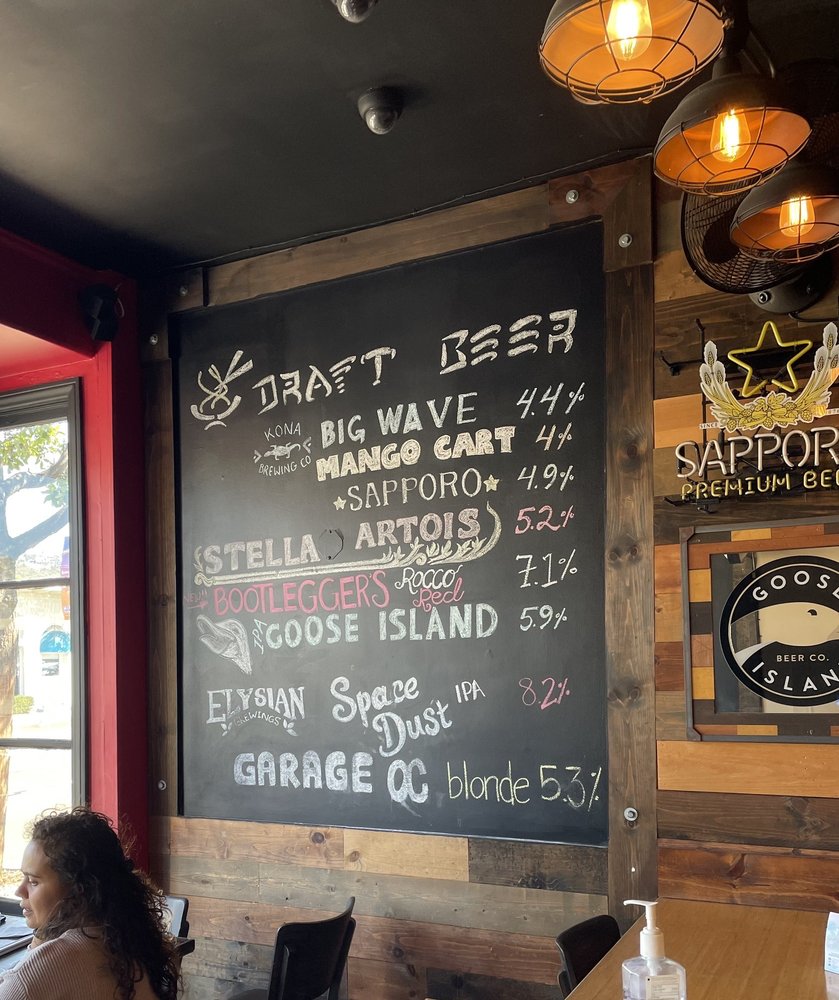 DRAFT BEER
KONA BREWING CO
BIG WAVE 4.4%
MANGO CART 4%
SAPPORO 4.9%
STELLA ARTOIS 5.2%
BOOTLEGGER'S Rocco Red 7.1%
IPA GOOSE ISLAND 5.9%
ELYSIAN BREWINGS Space Dust IPA 8.2%
GARAGE OC blonde 5.3%
SINCE
SAPPORO
PREMIUM BEE
GOOSE
BEER CO.
ISLAN